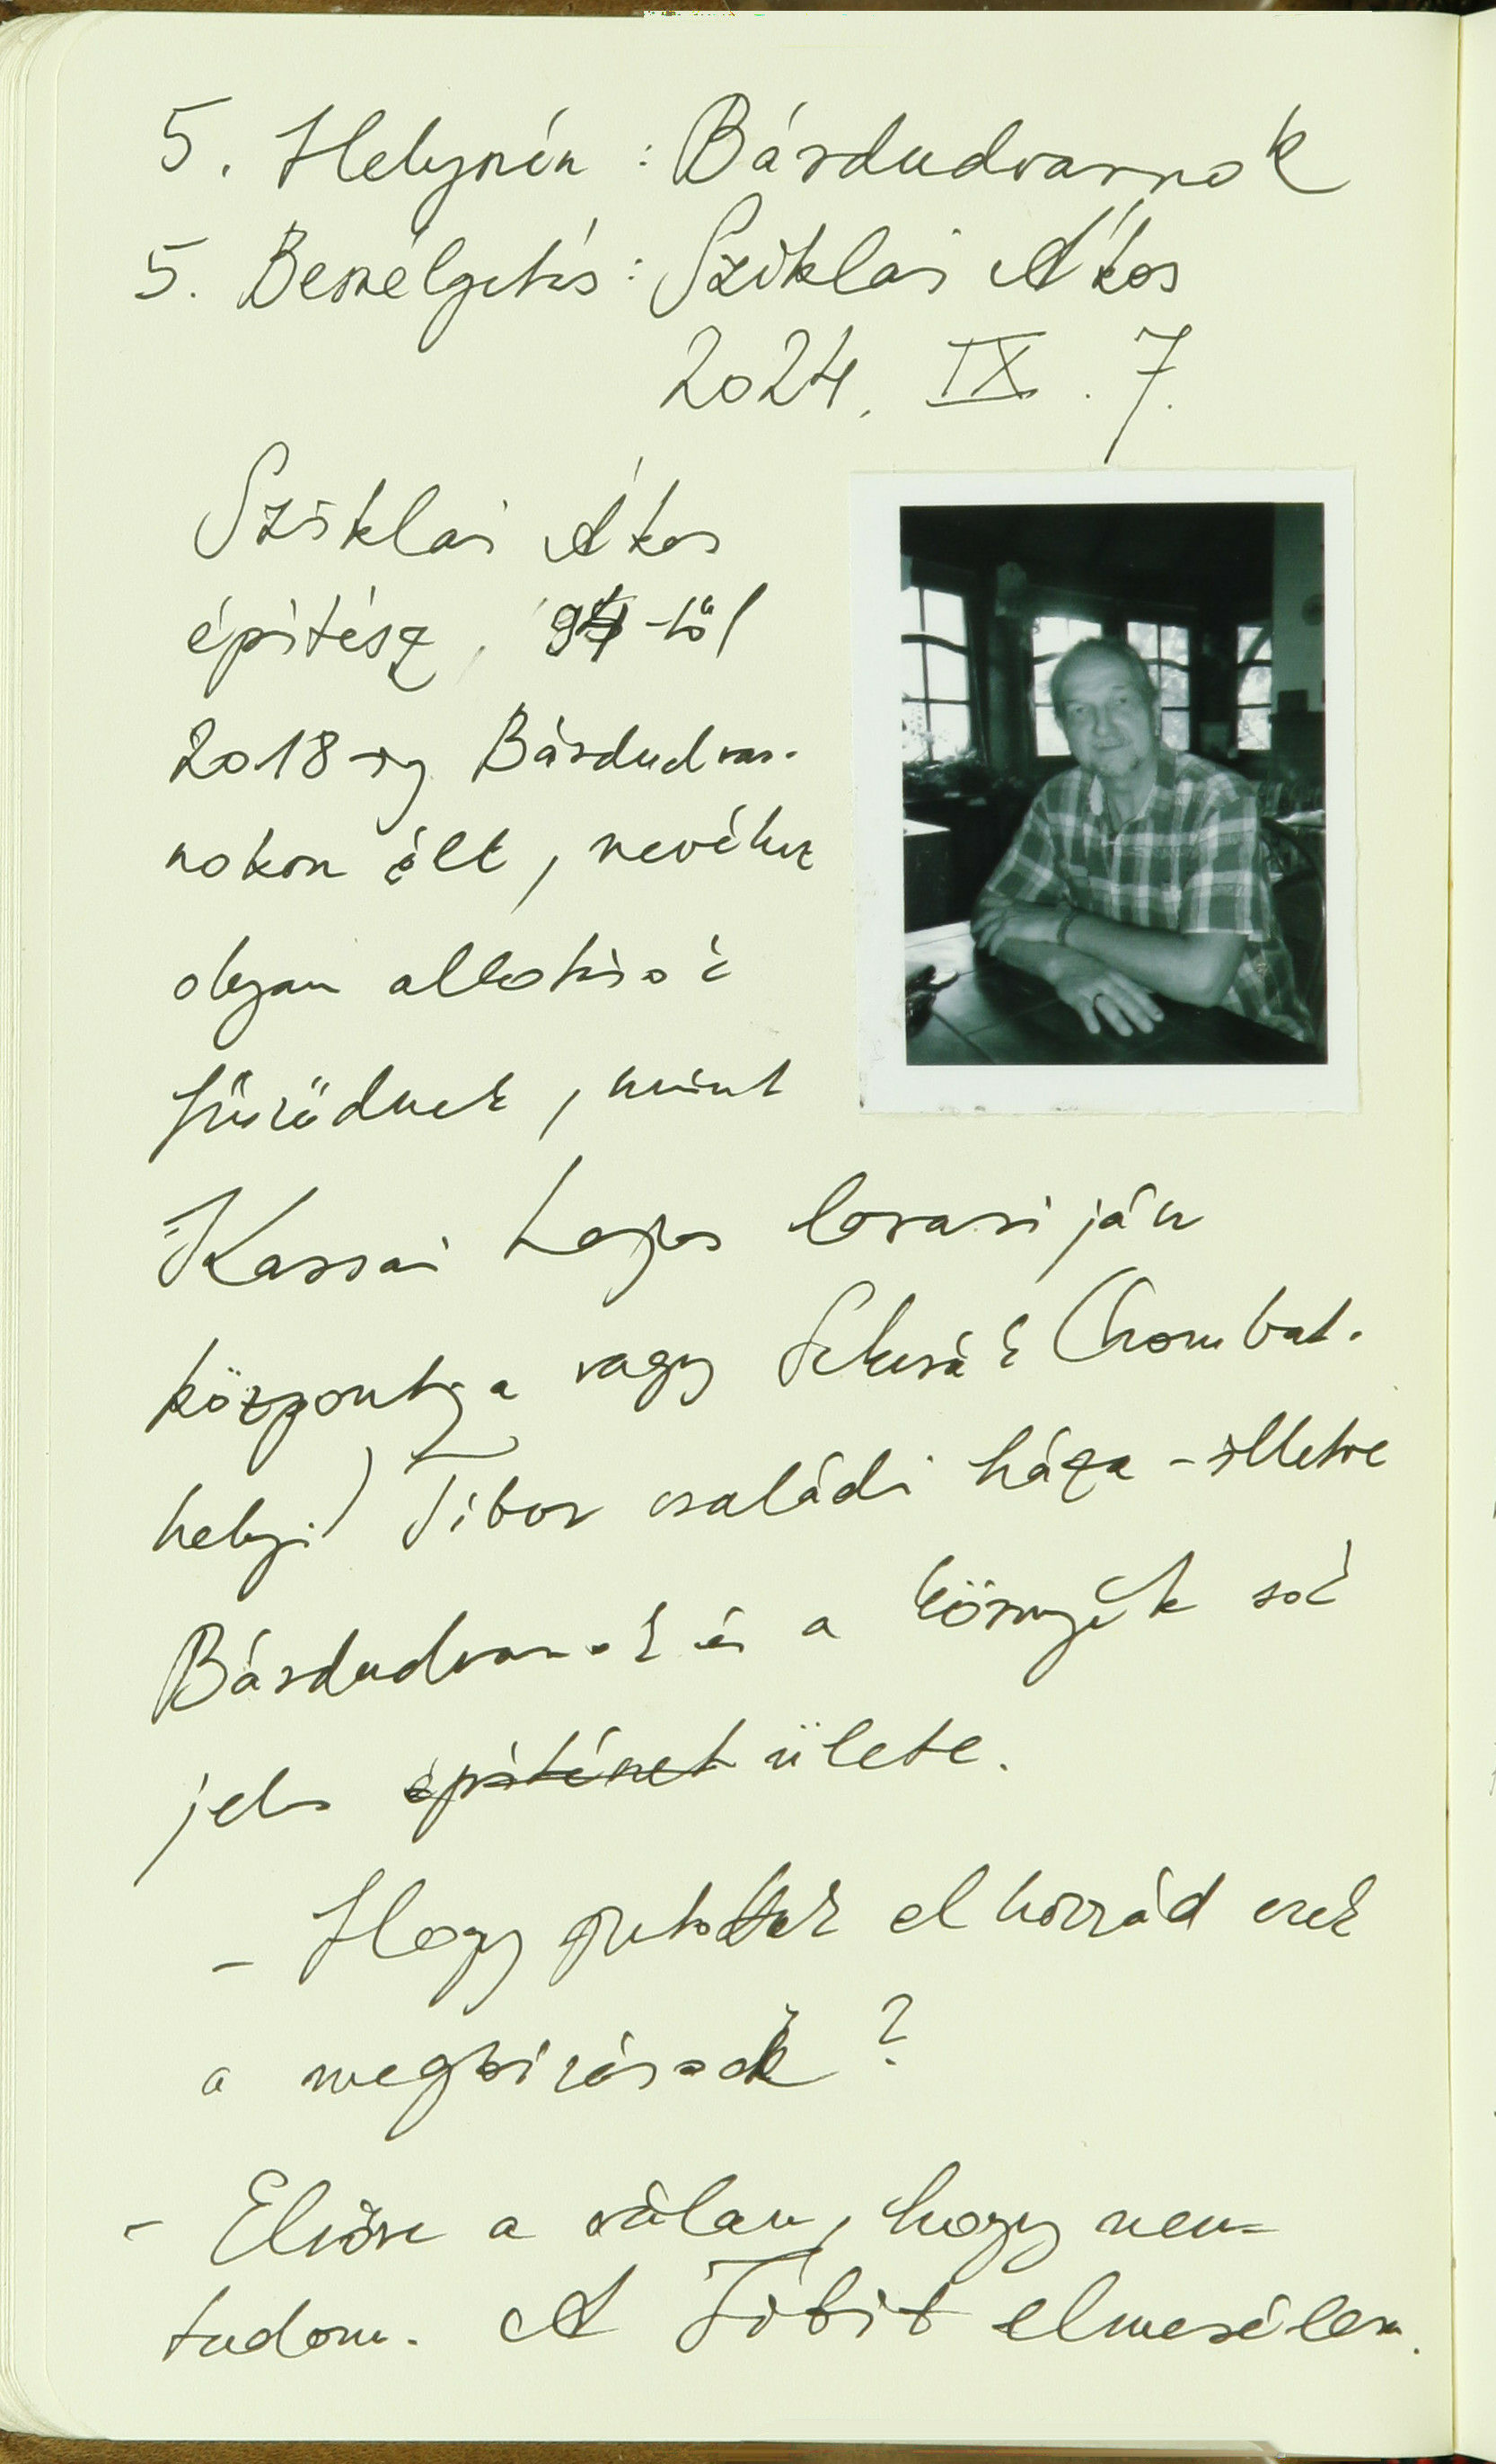 5. Helyszín : Bárdudvarnok
5. Beszélgetés : Sziklai Ákos
2024. IX. 7.
Sziklai Ákos
építész, -től
2018-ig Bárdudvar-
nokon élt, nevéhez
olyan alkotások
fűződnek, mint
Kassai Lajos lovasíján
központja vagy (Szombat-
helyi) Tibor családi háza - illetve
Bárdudvarnok és a környék sok
jeles építészet ülete.
- Hogy jutottak el hozzád ezek
a megbízások ?
- Először a válasz, hogy nem
tudom. A Többit elmesélem.